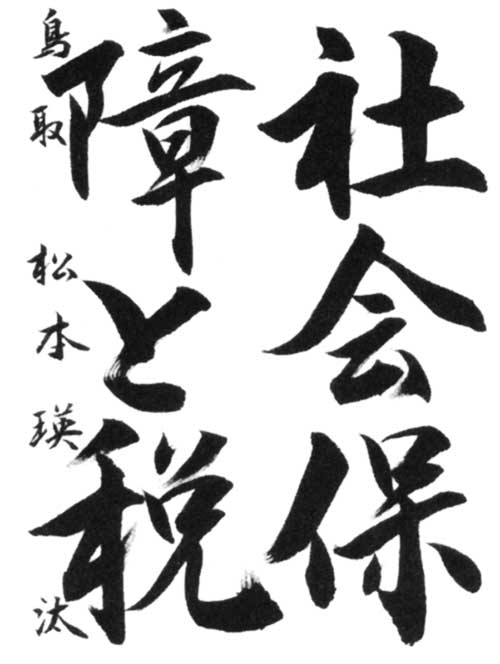 社会保
障と税
鳥取 松本瑛汰